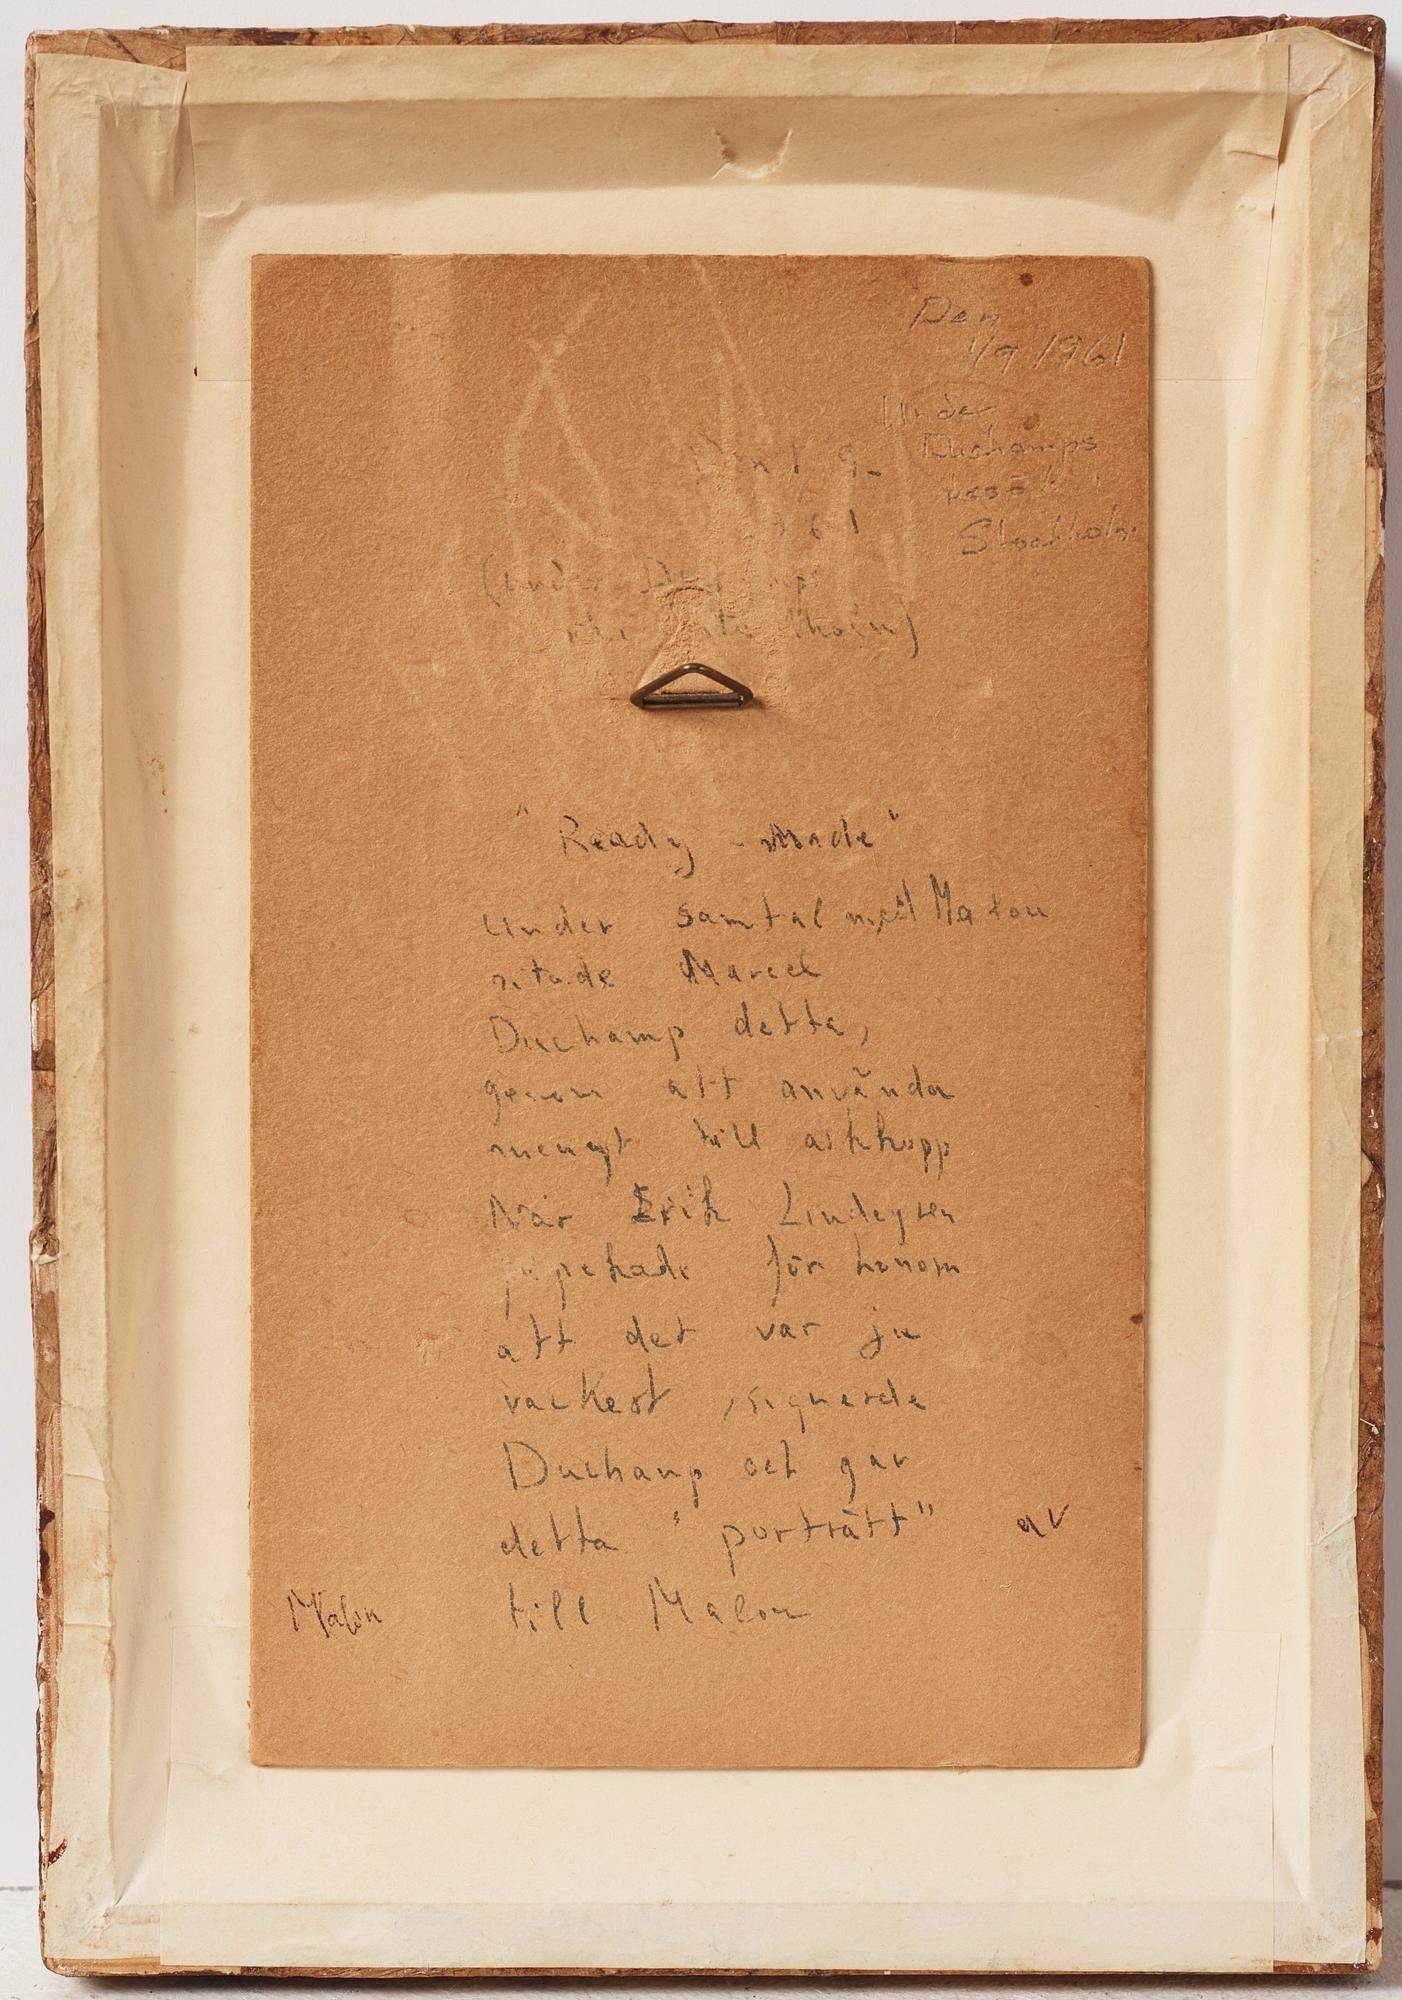 Den
1/9 1961
Under
Duchamps
besök i
Stockholm
Den 1 9-
61
(under
"Ready-Made"
under samtal med Malou
ritade Marcel
Duchamp detta,
genom att använda
till askkopp
När Erik Lindegren
påpekade för honom
att det var ju
vackert, signerde
Duchamp och gav
detta "porträtt" av
Malou till Malou